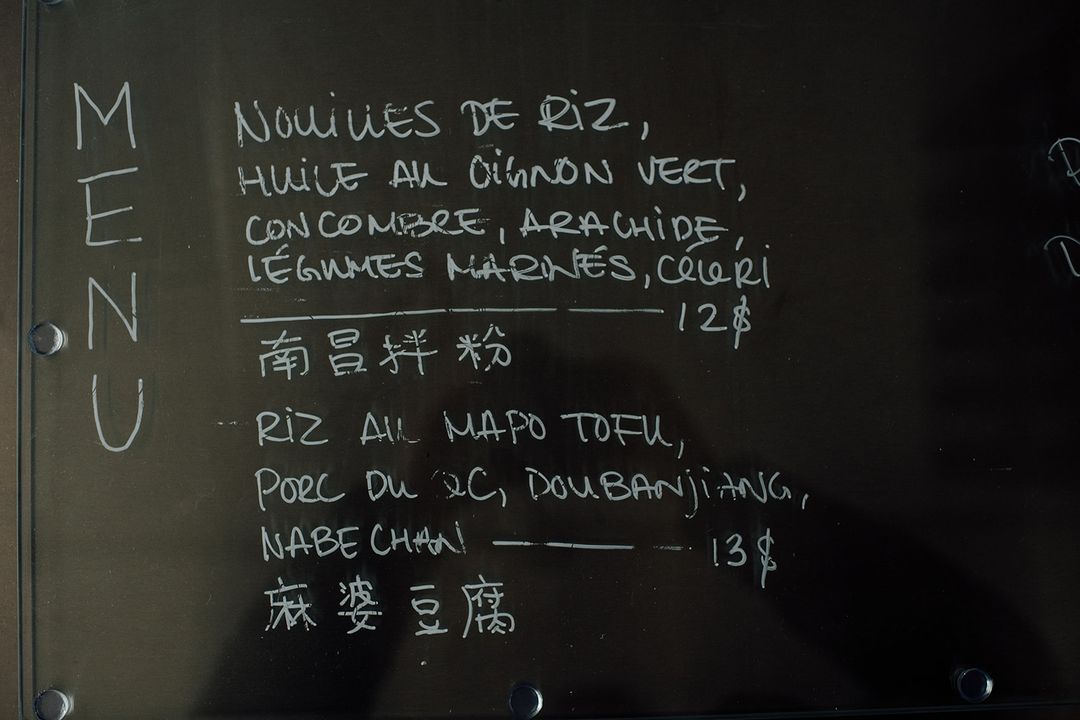 MENU
NOUILLES DE RIZ,
HUILE AU OIGNON VERT,
CONCOMBRE, ARACHIDE,
LÉGUMES MARINÉS, CÉLERI
12$
南昌拌粉
RIZ AU MAPO TOFU,
PORC DU QC, DOUBANJIANG,
NABECHAN 13$
麻婆豆腐